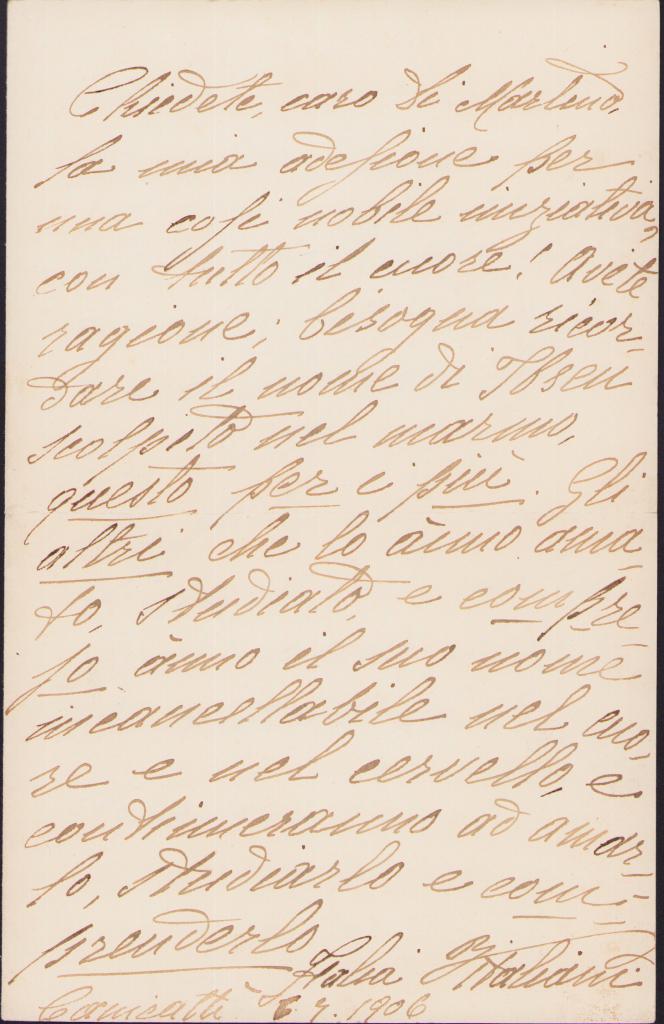 Chiedete, caro Di Martino,
la mia adesione per
una così nobile iniziativa,
con tutto il cuore! Avete
ragione; bisogna ricor-
dare il nome di Ibsen
scolpito nel marmo,
questo per i più. Gli
altri che lo ànno ama-
to, studiato, e compre-
so ànno il suo nome
incancellabile nel cuo-
re e nel cervello, e
continueranno ad amar-
lo, studiarlo e com-
prenderlo
Italia Vitaliani
Canicattì 6 7. 1906